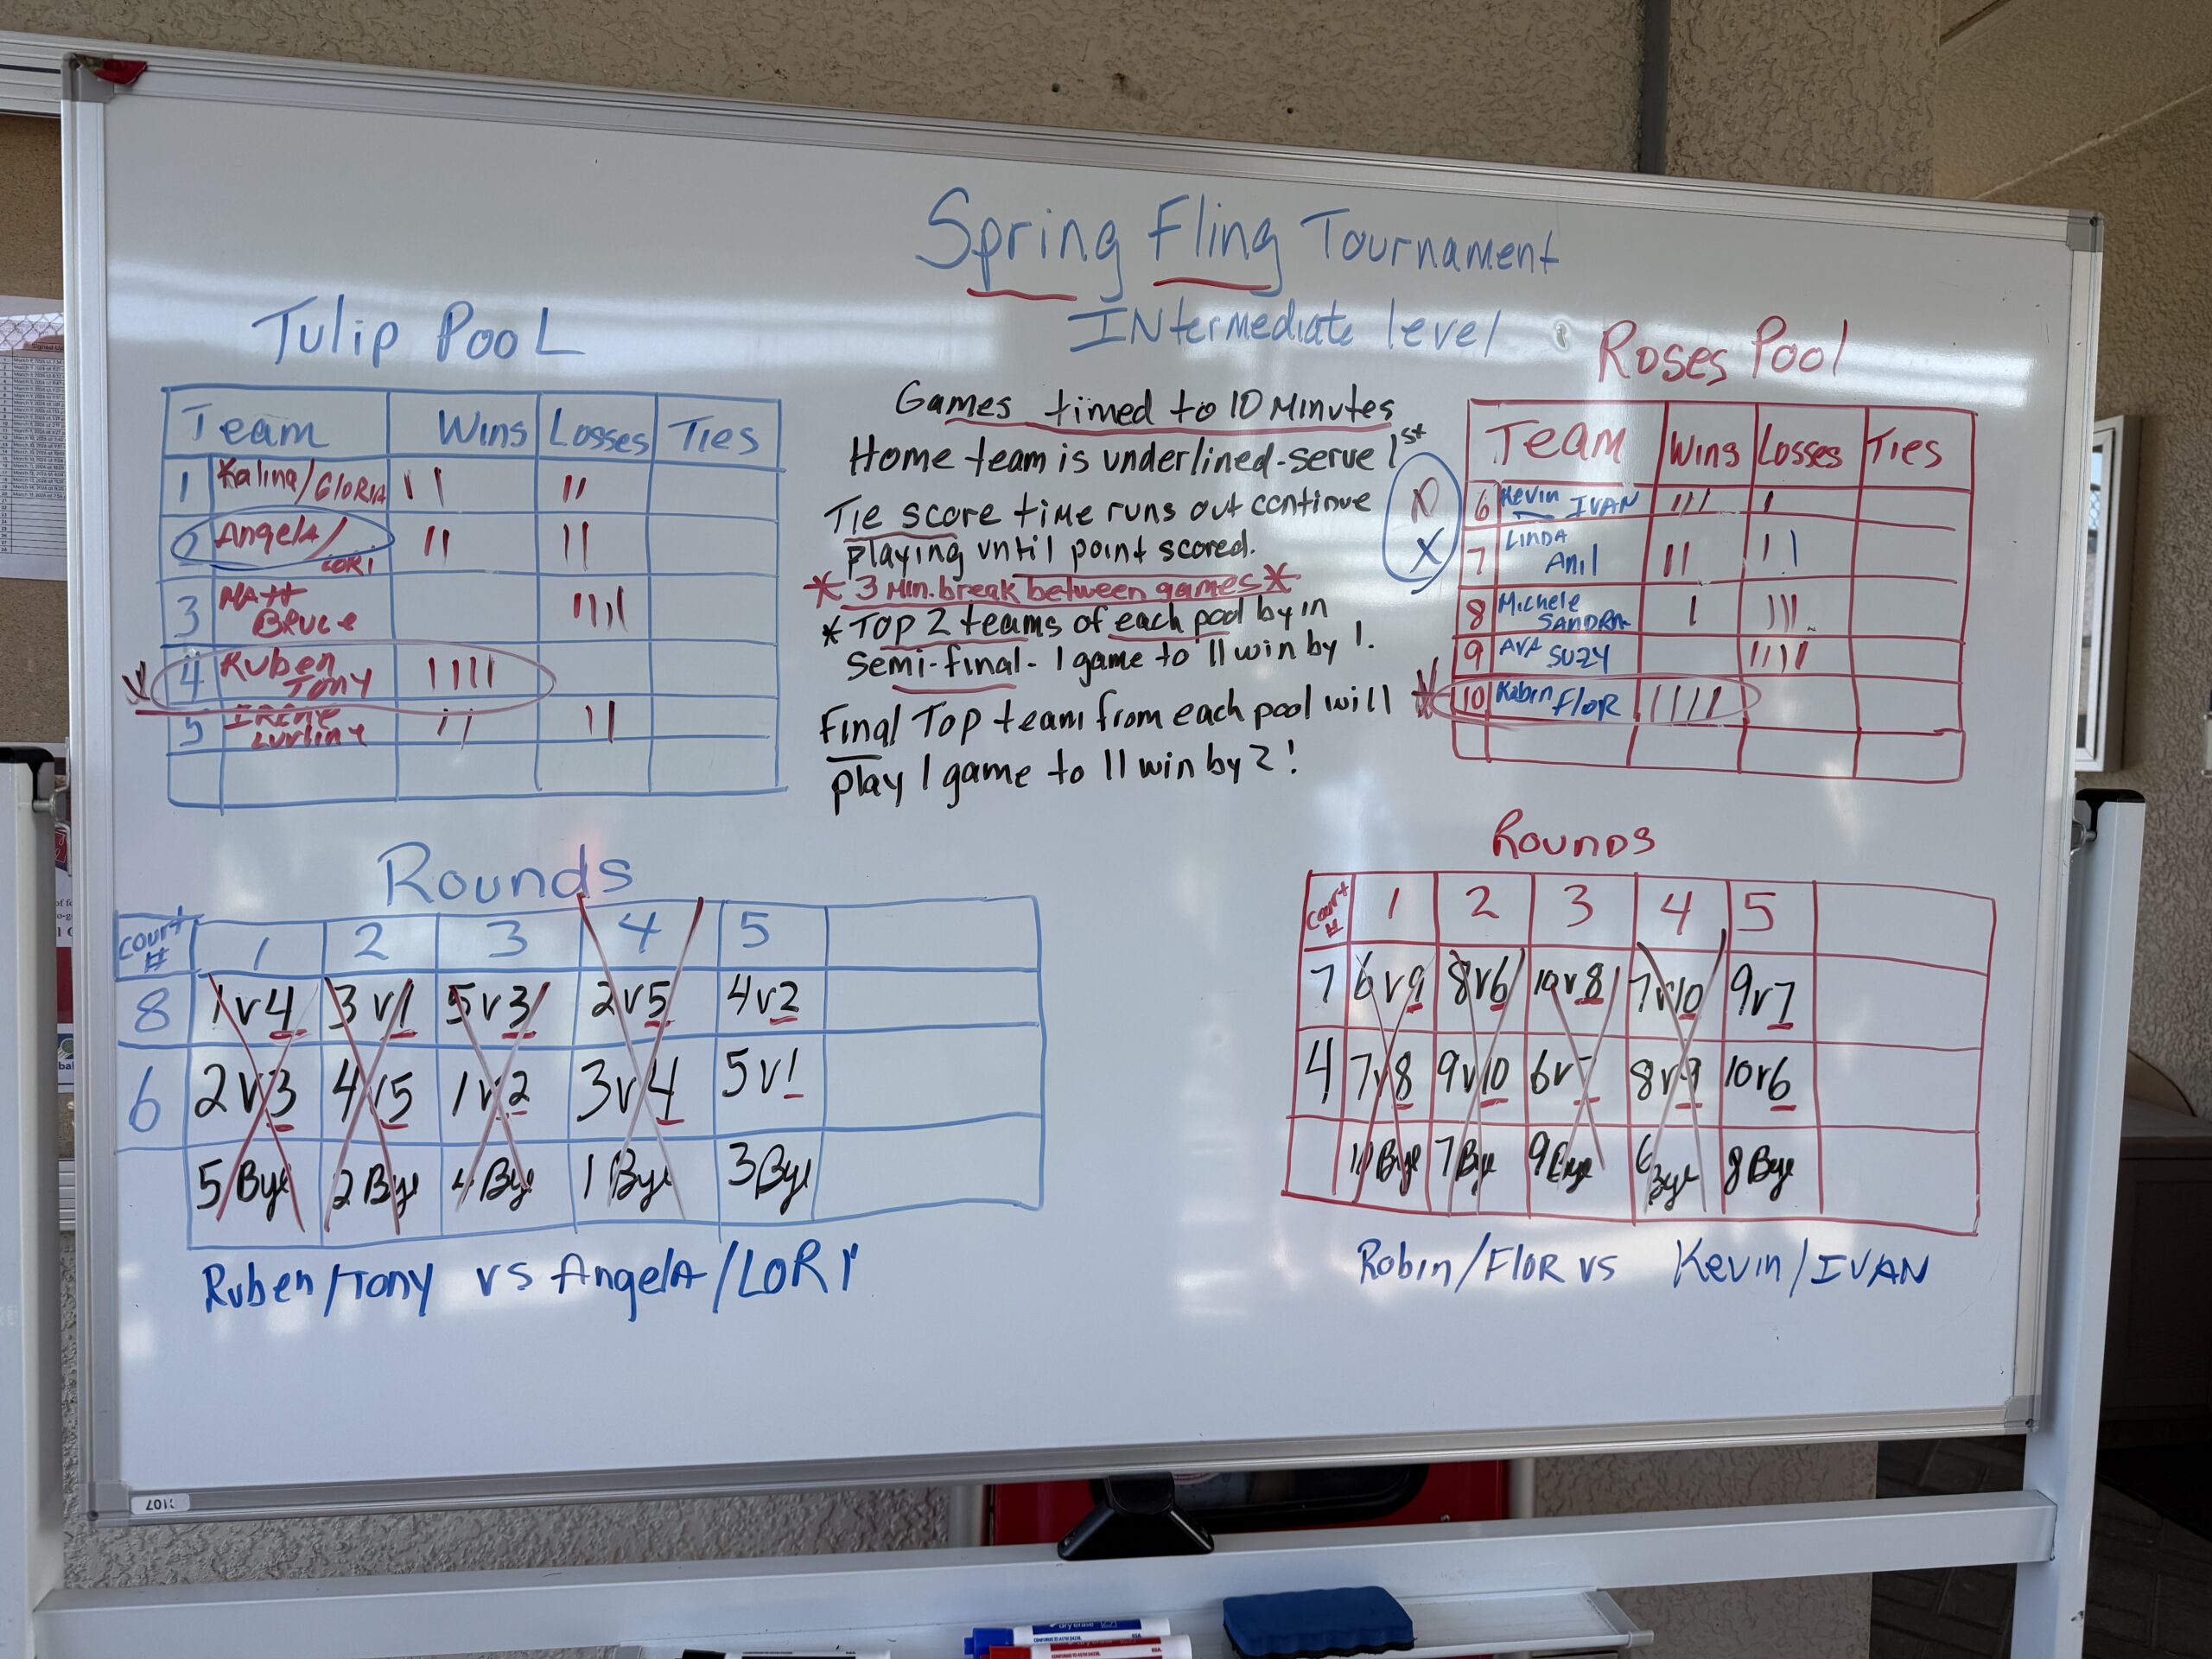 Spring Fling Tournament
INtermediate level
Tulip PooL
Team Wins Losses Ties
1 Kalina/GloRIA II II
2 Angela/LORI II II
3 MAtt BRUCe IIII
4 Ruben Tony IIII
5 IRene Lurline II II
Games timed to 10 Minutes
Home team is underlined-serve 1st
Tie score time runs out continue
playing until point scored.
* 3 Min. break between games *
* Top 2 teams of each pool by in
Semi-final - 1 game to 11 win by 1.
Final Top team from each pool will
play 1 game to 11 win by 2!
X
Roses Pool
Team Wins Losses Ties
6 Kevin IVAN III I
7 LINDA Anil II II
8 Michele SANDRA I III
9 AVA SUZY IIII
10 Robin FloR IIII
Rounds
Court # 1 2 3 4 5
8 1v4 3v1 5v3 2v5 4v2
6 2v3 4v5 1v2 3v4 5v1
5 Bye 2 Bye 4 Bye 1 Bye 3 Bye
Ruben/Tony vs AngelA/LORI
Rounds
Court # 1 2 3 4 5
7 6v9 8v6 10v8 7v10 9v7
4 7v8 9v10 6v7 8v9 10v6
10 Bye 7 Bye 9 Bye 6 Bye 8 Bye
Robin/FloR vs Kevin/IVAN